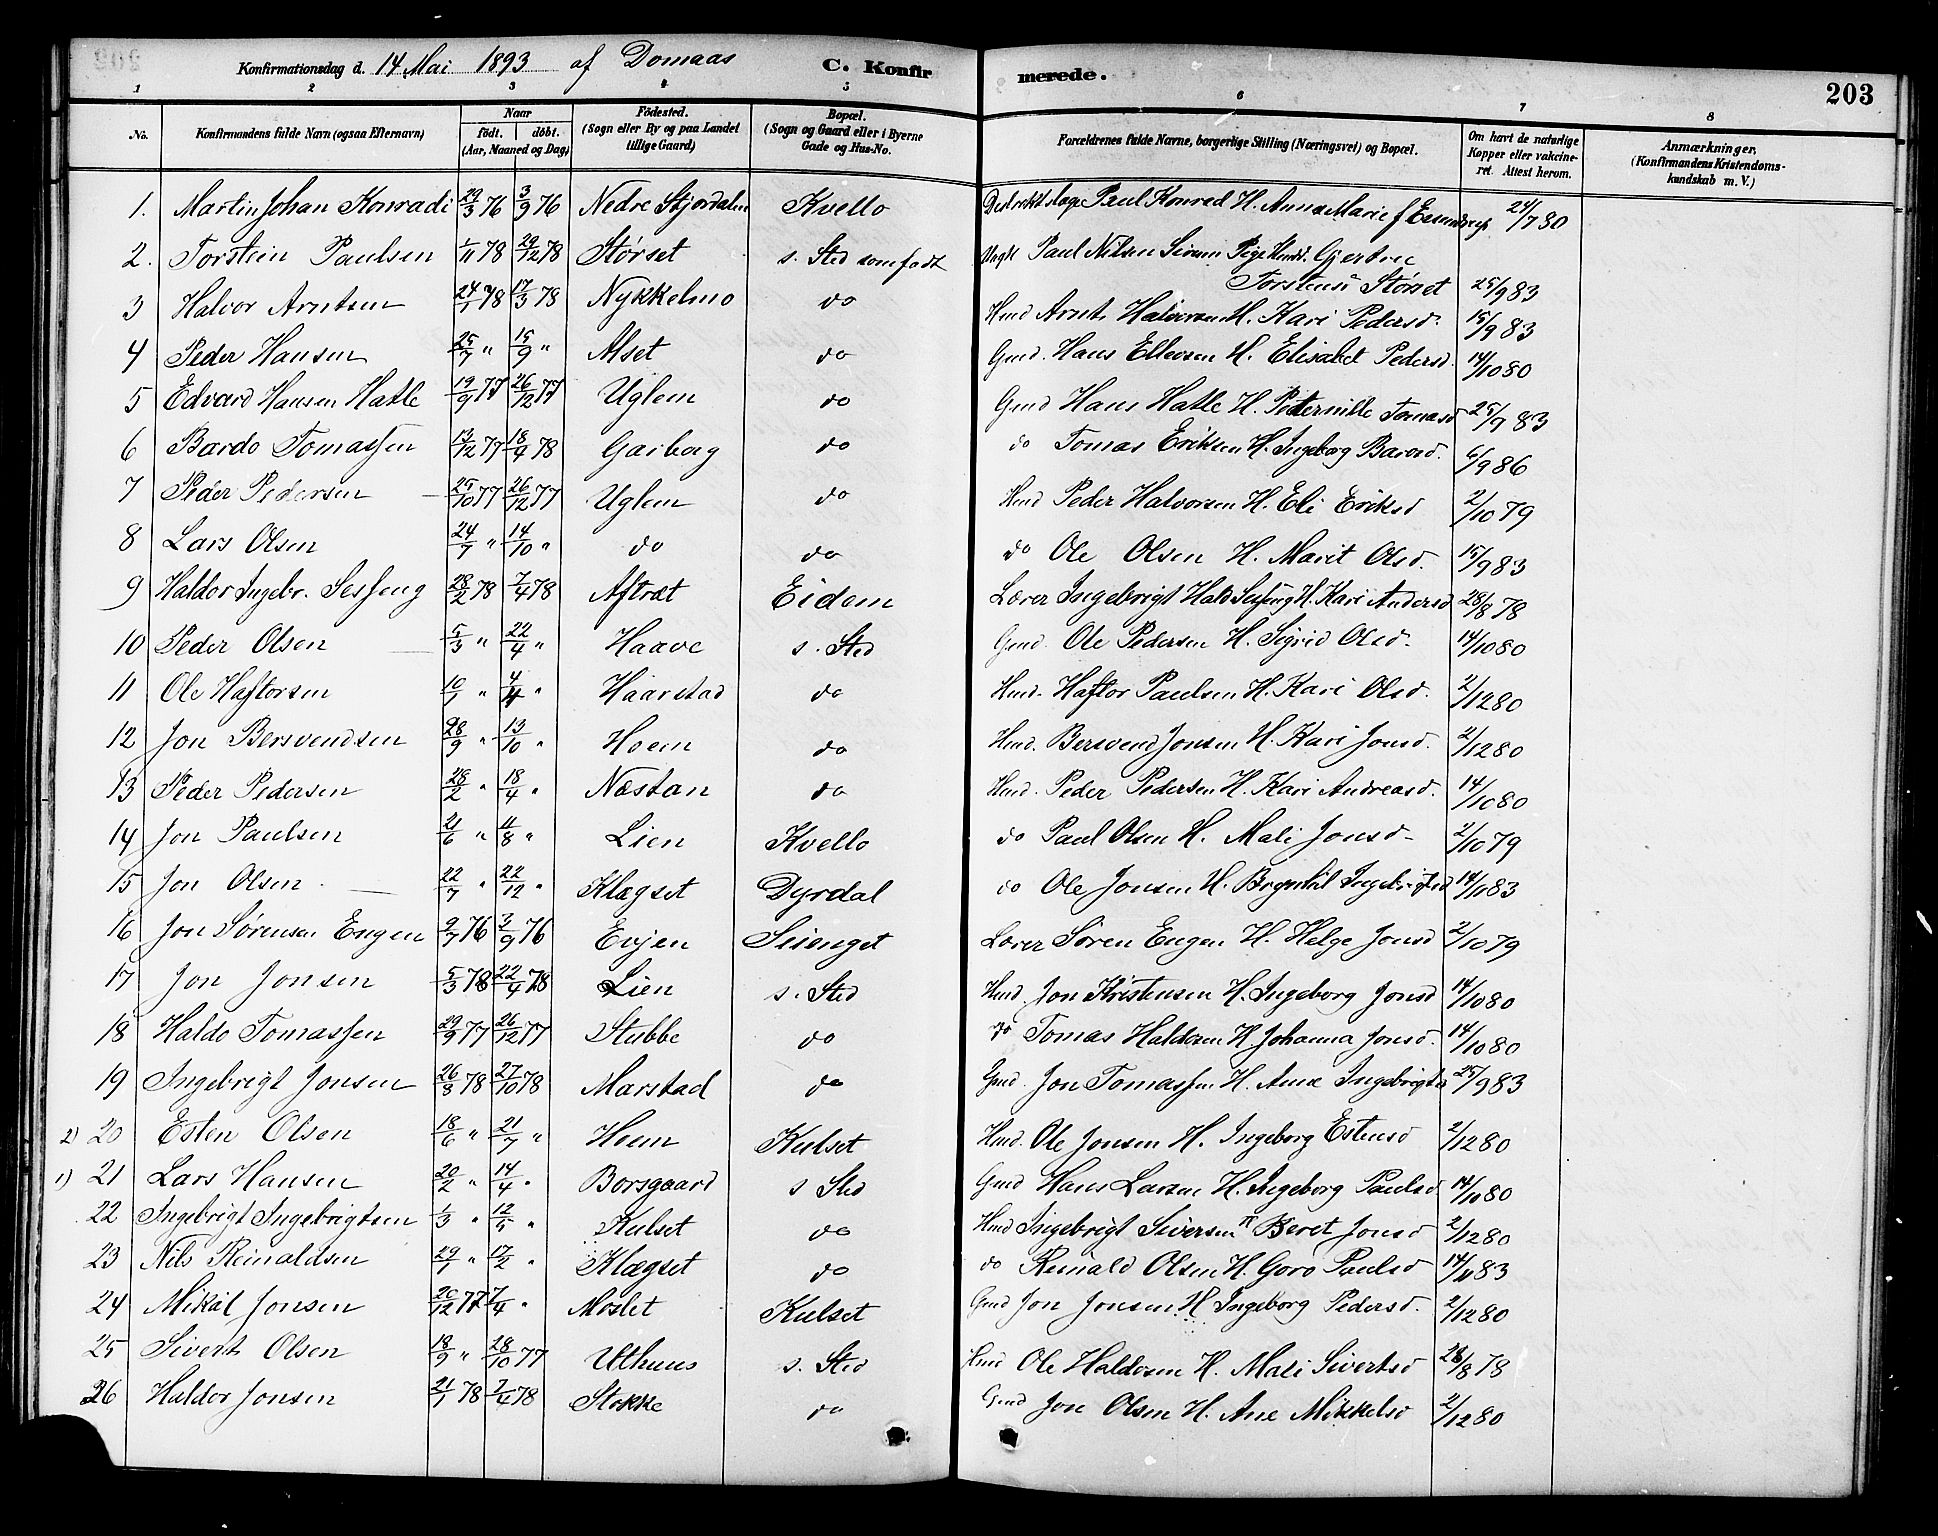 Konfirmationsdag d. 14 Mai 1893 af Domaas C. Konfirmerede. 203
1 2 3 4 5 6 7 8
No. Konfirmandens fulde Navn (ogsaa Efternavn) Naar født. døbt. (Aar, Maaned og Dag) Fødested. (Sogn eller By og paa Landet tillige Gaard) Bopæl. (Sogn og Gaard eller i Byerne Gade og Hus-No. Forældrenes fulde Navne, borgerlige Stilling (Næringsvei) og Bopæl. Om havt de naturlige Kopper eller vakcineret. Attest herom. Anmærkninger. (Konfirmandens Kristendomskundskab m. V.)
1. Martin Johan Konradi 29/3 76 3/9 76 Nedre Stjordalen Kvello Paul Konrad H. Anna Marie f 24/7 80
2. Torstein Paulsen 1/11 78 29/12 78 Størset s. Sted som født Paul Nilsen Pige Gjertru
Torstensd Størset 25/9 83
3 Halvor Arntsen 24/1 78 17/3 78 Nykkelmo do Hmd Arnt Halvorsen H. Kari Pedersd. 15/9 83
4 Peder Hansen 25/7 " 15/9 " Alset do Gmd. Hans Ellevsen H. Elisabet Pedersd. 14/10 80
5 Edvard Hansen Hatle 19/9 77 26/12 77 Uglem do Gmd Hans Hatle H. Peternille Tomasd 25/9 83
6 Bardo Tomassen 13/12 77 18/4 78 Garberg do do Tomas Eriksen H. Ingeborg Barosd. 6/9 86
7 Peder Pedersen 25/10 77 26/12 77 Uglem do Hmd Peder Halvorsen H. Eli Eriksd 2/10 79
8 Lars Olsen 24/7 " 14/10 " do do do Ole Olsen H. Marit Olsd. 15/9 83
9 Haldor Ingebr. Sesseng 28/2 78 7/4 78 Aftræt Eidem Lærer Ingebrigt Hald Sesseng H. Kari Andersd 28/8 78
10 Peder Olsen 5/3 " 22/4 " Haave s. Sted Gmd. Ole Pedersen H. Sigrid Olsd. 14/10 80
11 Ole Haftorsen 10/1 " 4/4 " Haarstad do Hmd. Haftor Paulsen H. Kari Olsd. 2/12 80
12 Jon Bersvendsen 28/9 " 13/10 " Hoem do Hmd. Bersvend Jonsen H. Kari Jonsd. 2/12 80
13 Peder Pedersen 28/2 " 18/4 " Næstan do Hmd. Peder Pedersen H. Kari Andreasd. 14/10 80
14 Jon Paulsen 21/6 " 11/8 " Lien Kvello do Paul Olsen H. Mali Jonsd 2/10 79
15 Jon Olsen. 22/7 " 22/12 " Klægset Dyrdal do Ole Jonsen H. Brynhil Ingebrigtsd 14/11 83
16 Jon Sørensen Engen 9/7 76 3/9 76 Evjen Lærer Søren Engen H. Helge Jonsd 2/10 79
17 Jon Jonsen 5/3 78 22/4 78 Lien s. Sted Hmd. Jon Kristensen H. Ingeborg Jonsd 14/10 80
18 Haldo Tomassen 29/9 77 26/12 77 Stubbe do do Tomas Haldosen H Johanna Jonsd. 14/10 80
19 Ingebrigt Jonsen 26/8 78 27/10 78 Marstad do Gmd. Jon Tomassen H. Ane Ingebrigtsd 25/9 83
2) 20 Esten Olsen 18/6 " 21/7 " Hoem Kulset Hmd. Ole Jonsen H. Ingeborg Estensd 2/12 80
1) 21 Lars Hansen 20/2 " 14/4 " Borsgaard s Sted Gmd Hans Larsen H. Ingeborg Paulsd 14/10 80
22 Ingebrigt Ingebrigtsen 1/3 " 12/5 " Kulset do Hmd Ingebrigt Siversen H Beret Jonsd 2/12 80
23 Nils Reinaldsen 29/1 " 17/2 " Klægset do do Reinald Olsen H. Goro Paulsd 14/11 83
24 Mikal Jonsen 20/12 77 7/4 " Moslet Kulset Gmd Jon Jonsen H Ingeborg Pedersd. 2/12 80
25 Sivert Olsen 18/9 " 28/10 77 Uthuus s. Sted Hmd Ole Haldosen H. Mali Sivertsd 28/8 78
26 Haldor Jonsen 21/1 78 7/4 78 Stokke do Gmd Jon Olsen H. Ane Mikkelsd 2/12 80